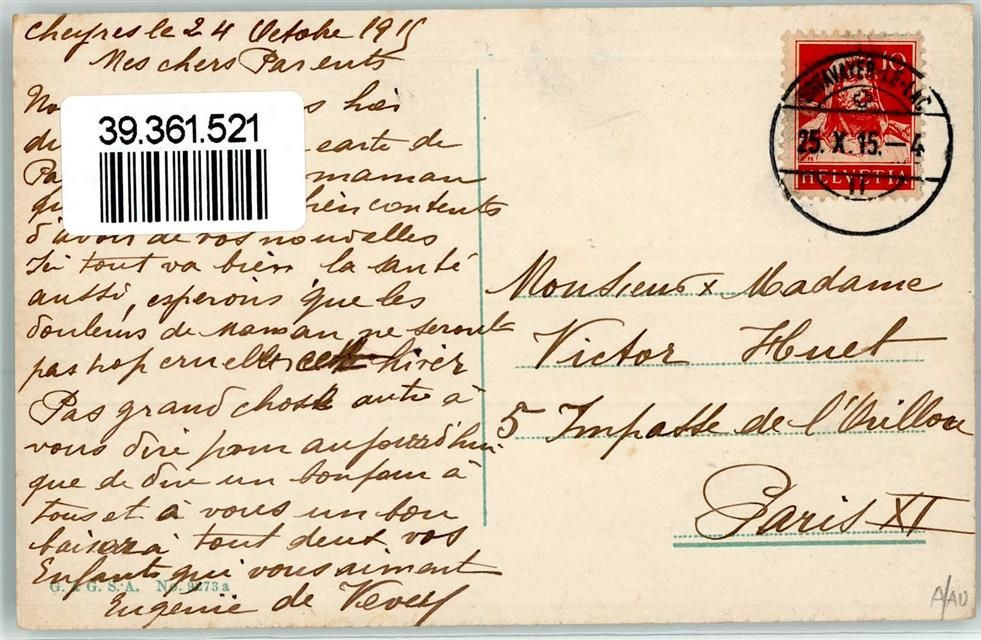 Cheyres le 24 Octobre 1915
Mes chers Parents
hier
de carte de
maman
bien contents
d'avoir de vos nouvelles
Ici tout va bien la santé
aussi, esperons que les
douleurs de Maman ne seront
pas trop cruelles cet hiver
Pas grand chose autre à
vous dire pour aujourd'hui
que de dire un bonjour à
tous et à vous un bon
baiser à tout deux vos
Enfants qui vous aiment
Eugénie de Vevey
G. & G. S. A. No. 9273a
39.361.521
10
HELVETIA
ESTAVAYER-LE-LAC
25. X. 15. — 4
Monsieur x Madame
Victor Huet
5 Impasse de l'Orillon
Paris XI
A/AU